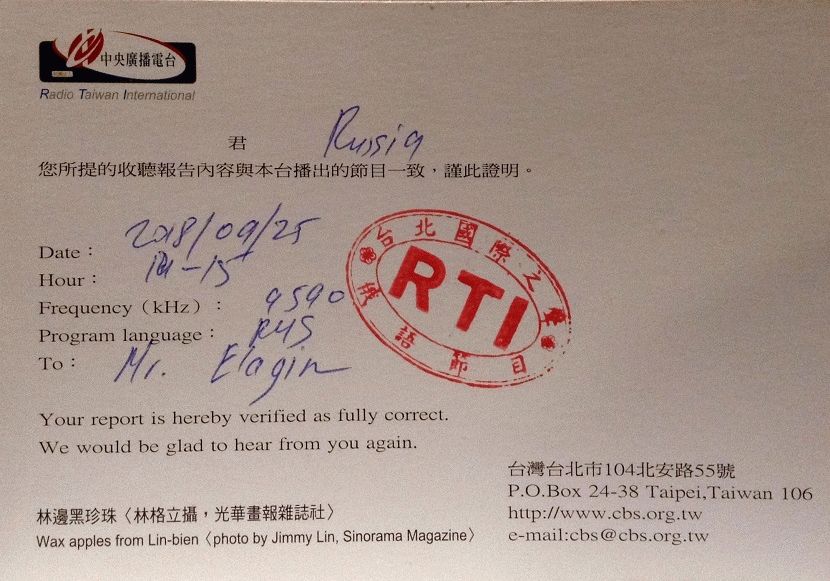 中央廣播電台
Radio Taiwan International
君 Russia
您所提的收聽報告內容與本台播出的節目一致，謹此證明。
Date： 2018/09/25
Hour： 14-15
Frequency（kHz）： 9590
Program language： RUS
To： Mr. Elagin
台北國際之聲
RTI
俄語節目
Your report is hereby verified as fully correct.
We would be glad to hear from you again.
台灣台北市104北安路55號
P.O.Box 24-38 Taipei,Taiwan 106
http://www.cbs.org.tw
e-mail:cbs@cbs.org.tw
林邊黑珍珠〈林格立攝，光華畫報雜誌社〉
Wax apples from Lin-bien〈photo by Jimmy Lin, Sinorama Magazine〉